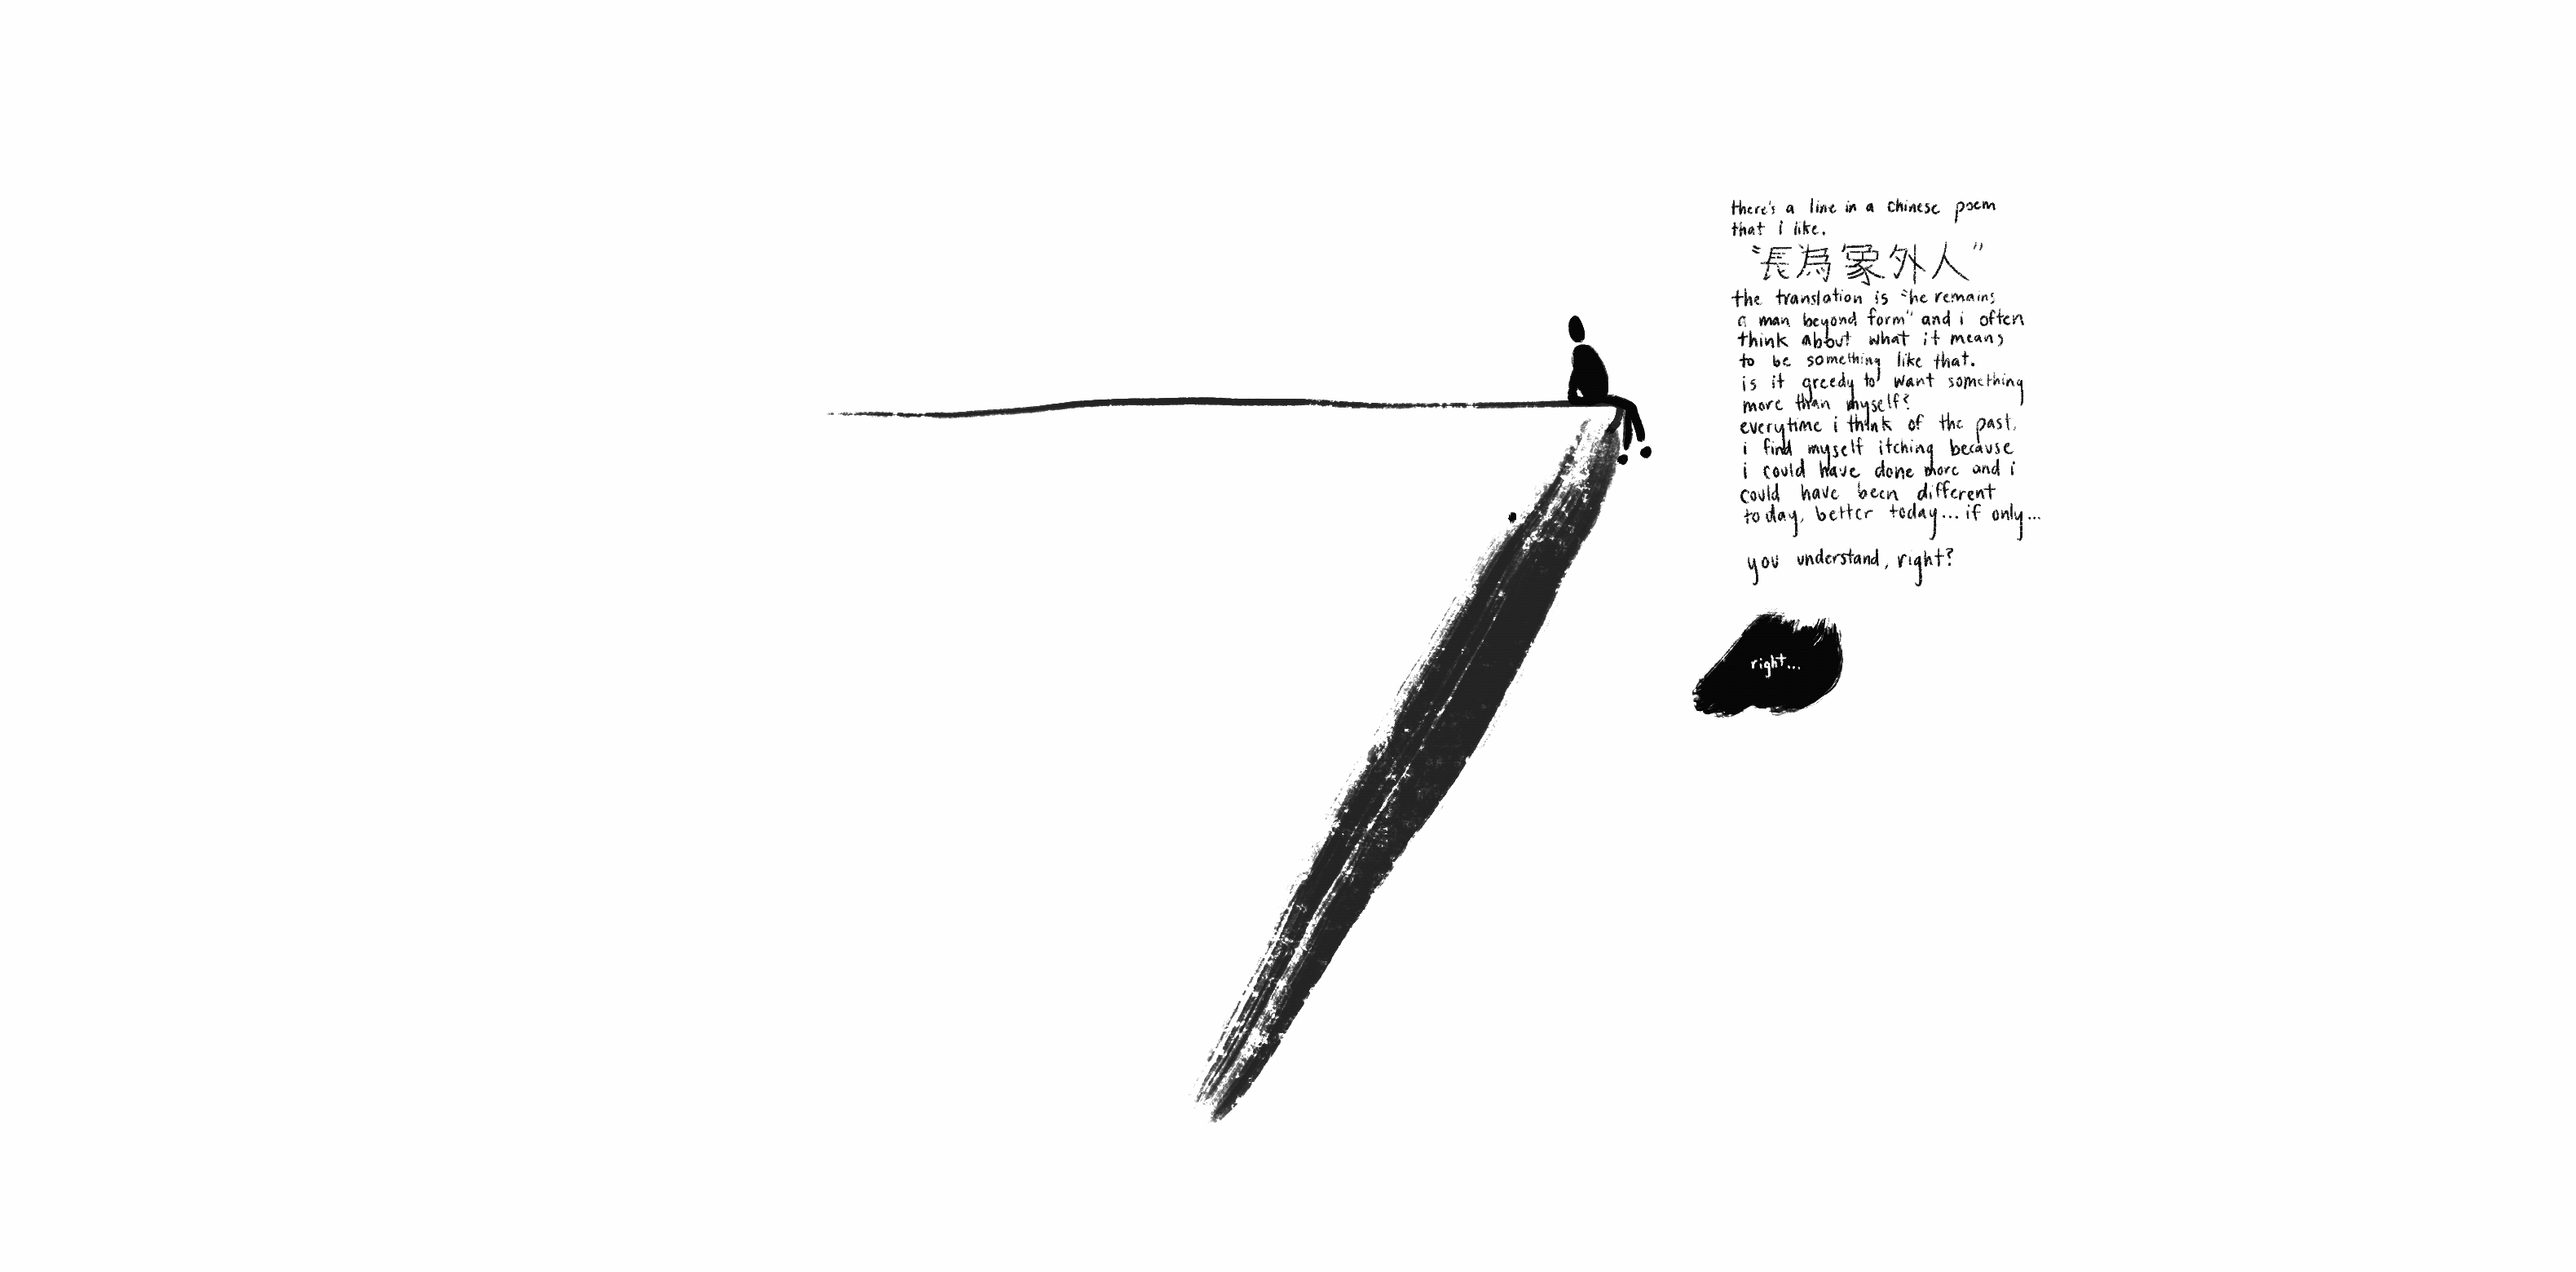 there's a line in a chinese poem
that i like.
"長為象外人"
the translation is "he remains
a man beyond form" and i often
think about what it means
to be something like that.
is it greedy to want something
more than myself?
everytime i think of the past,
i find myself itching because
i could have done more and i
could have been different
today, better today... if only...
you understand, right?
right...